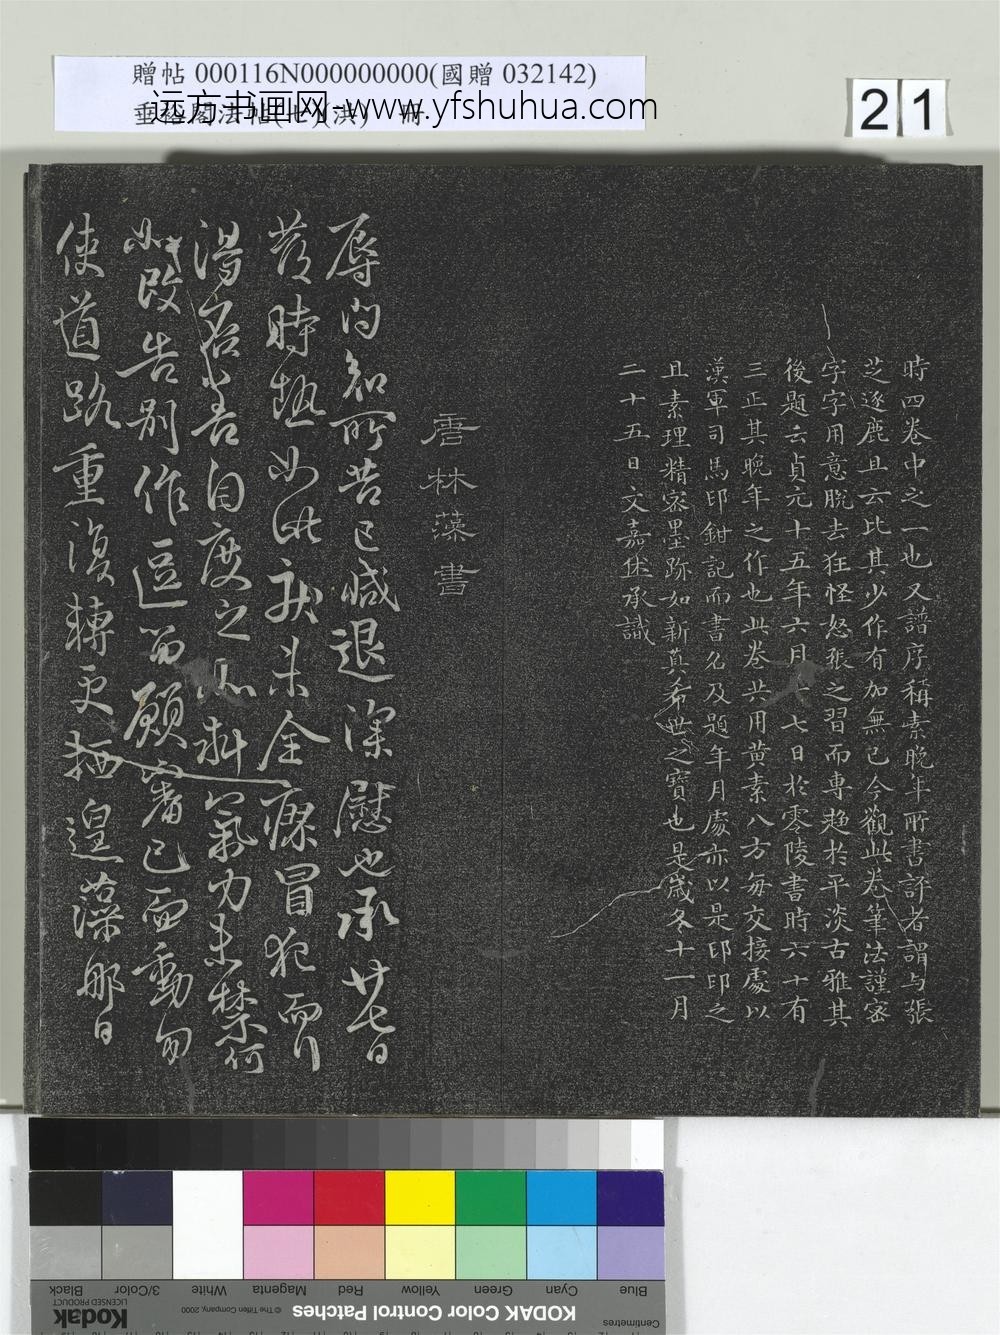 贈帖 000116N000000000(國贈 032142)
远方书画网-www.yfshuhua.com
21
時四卷中之一也又譜序稱素晚年所書評者謂与張
芝逐鹿且云比其少作有加無已今觀此卷筆法謹密
字字用意脫去狂怪怒張之習而專趨於平淡古雅其
後題云貞元十五年六月十七日於零陵書時六十有
三正其晚年之作也此卷共用黃素八方每交接處以
漢軍司馬印鉗記而書名及題年月處亦以是印印之
且素理精密墨跡如新真希世之寶也是歲冬十一月
二十五日文嘉依承識
唐林藻書
辱问知所苦已減退深慰也承廿七日
發時熱如此疾未全瘳冒犯而行
渴若善自度之 料氣力未禁何
如改告別作逗留顧審已而動勿
使道路重復轉更栖遑藻那日
Blue
Cyan
Green
Yellow
Red
Magenta
White
3/Color
Black
Centimetres
KODAK Color Control Patches
© The Tiffen Company, 2000
Kodak
LICENSED PRODUCT